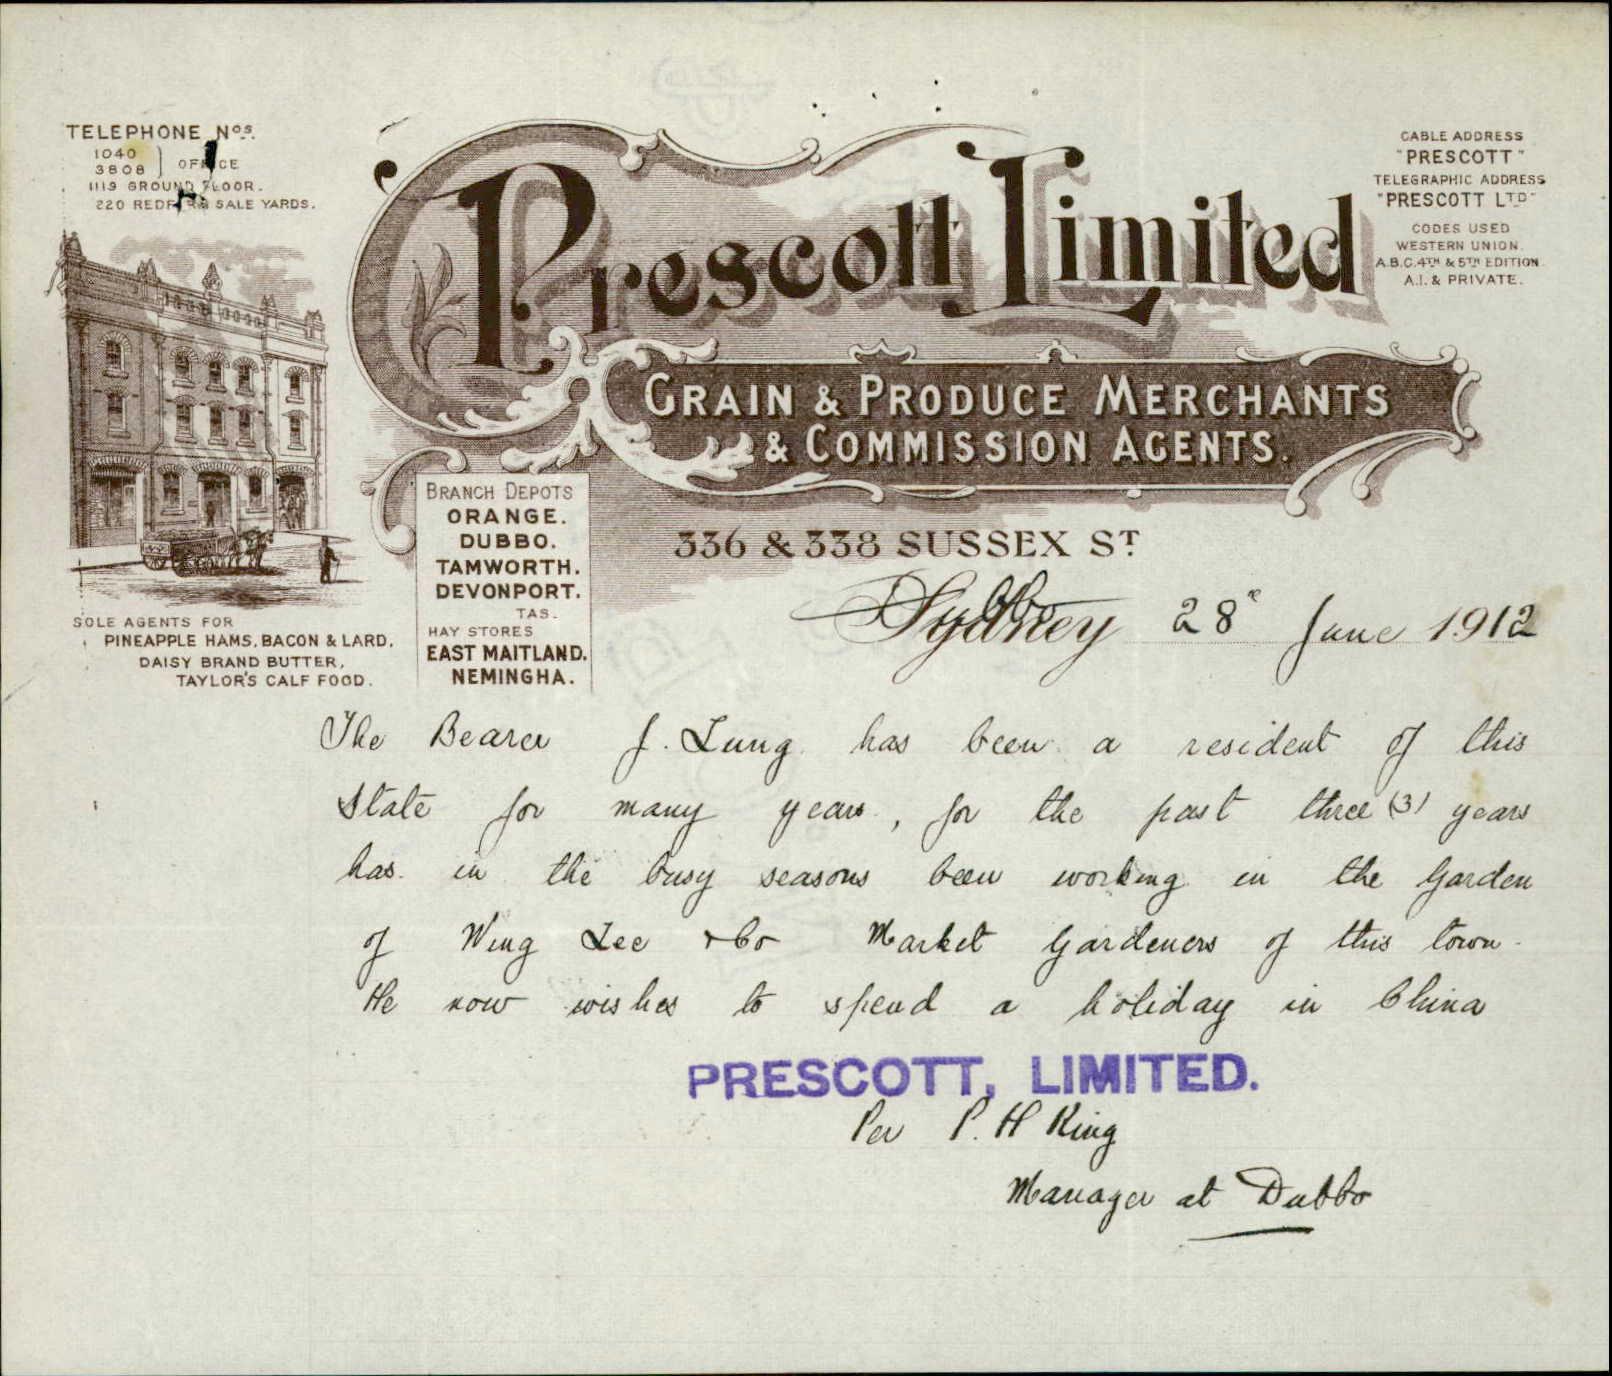 TELEPHONE Nos.
1040
3808 } OFFICE
1119 GROUND FLOOR.
220 REDFERN SALE YARDS.
Prescott Limited
GRAIN & PRODUCE MERCHANTS
& COMMISSION AGENTS.
CABLE ADDRESS
"PRESCOTT"
TELEGRAPHIC ADDRESS
"PRESCOTT LTD"
CODES USED
WESTERN UNION.
A.B.C. 4TH & 5TH EDITION.
A.I. & PRIVATE.
SOLE AGENTS FOR
PINEAPPLE HAMS, BACON & LARD.
DAISY BRAND BUTTER,
TAYLOR'S CALF FOOD.
BRANCH DEPOTS
ORANGE.
DUBBO.
TAMWORTH.
DEVONPORT.
TAS.
HAY STORES
EAST MAITLAND.
NEMINGHA.
336 & 338 SUSSEX ST
Sydney Dubbo 28 June 1912
The Bearer J. Lung has been a resident of this
State for many years, for the past three (3) years
has in the busy seasons been working in the Garden
of Wing Lee & Co Market Gardeners of this town.
He now wishes to spend a holiday in China
PRESCOTT, LIMITED.
Per P. H King
Manager at Dubbo